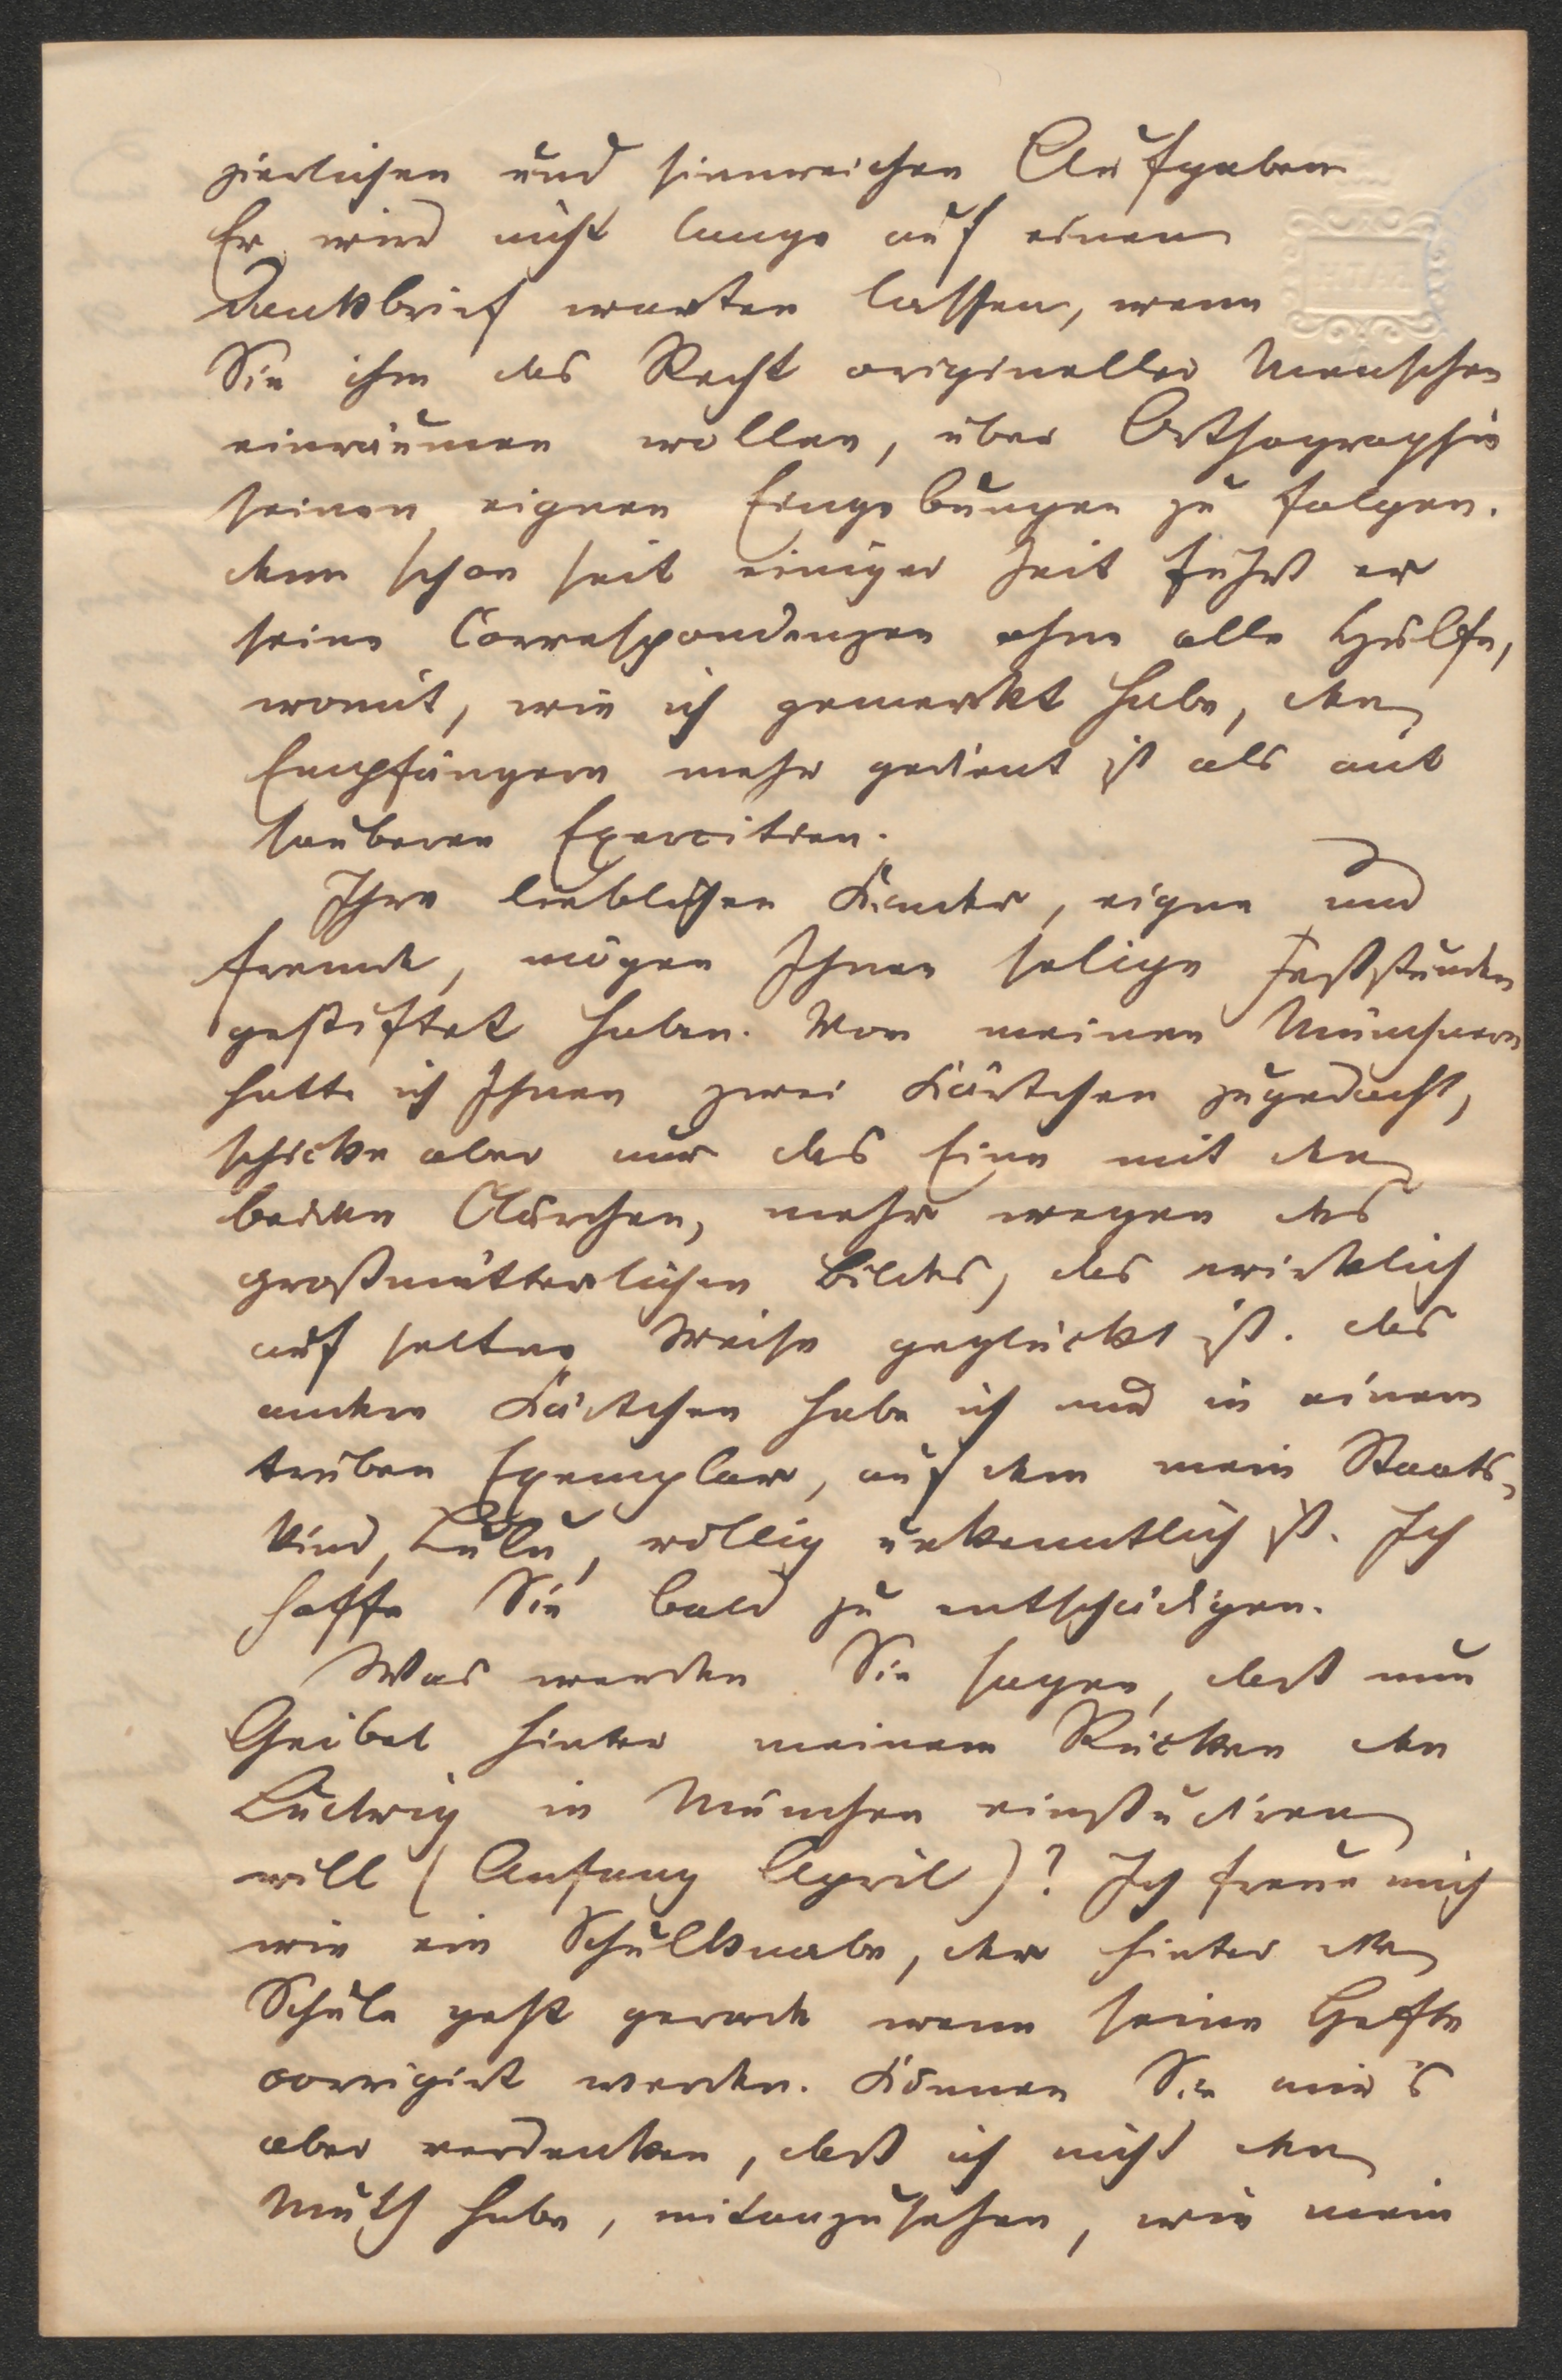 zierlichen und sinnreichen Aufgaben
Er wird nicht lange auf einen
Dankbrief warten lassen, wenn
Sie ihm das Recht origineller Menschen
einräumen wollen, über Orthographie
seinen eignen Eingebungen zu folgen.
denn schon seit einiger Zeit führt er
seine Correspondenzen ohne alle Hülfe,
womit, wie ich gemerkt habe, den
Empfängern mehr gedient ist als mit
sauberen Exercitien.
Ihre lieblichen Kinder, eigne und
fremde, mögen Ihnen selige Feststunden
gestiftet haben. Von meinen Münchnern
hatte ich Ihnen zwei Kärtchen zugedacht,
schicke aber nur das Eine mit den
beiden Clärchen, mehr wegen des
großmütterlichen Bildes, das wirklich
auf seltne Weise geglückt ist. das
andere Kärtchen habe ich nur in einem
trüben Exemplar, auf dem mein Staats-
kind, Lulu, völlig unkenntlich ist. Ich
hoffe Sie bald zu entschädigen.
Was werden Sie sagen, daß nun
Geibel hinter meinem Rücken den
Ludwig in München einstudiren
will (Anfang April)? Ich freue mich
wie ein Schulknabe, der hinter die
Schule geht gerade wenn seine Hefte
corrigirt werden. Können Sie mir's
aber verdenken, daß ich nicht den
Muth habe, mitanzusehen, wie mein